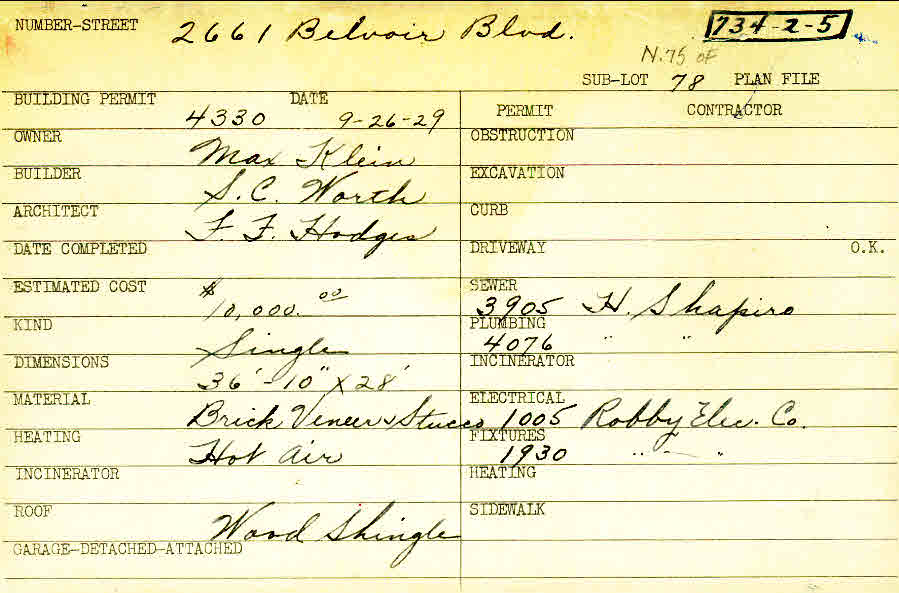 NUMBER-STREET 2661 Belvoir Blvd. 734-2-5
N.75 of
SUB-LOT 78 PLAN FILE
BUILDING PERMIT DATE PERMIT CONTRACTOR
4330 9-26-29
OWNER OBSTRUCTION
Max Klein
BUILDER EXCAVATION
S. C. Worth
ARCHITECT CURB
F. F. Hodges
DATE COMPLETED DRIVEWAY O.K.
ESTIMATED COST SEWER
$10,000.00 3905 H. Shapiro
KIND PLUMBING
Single 4076 " "
DIMENSIONS INCINERATOR
36'-10" X 28'
MATERIAL ELECTRICAL
Brick Veneer & Stucco 1005 Robby Elec. Co.
HEATING FIXTURES
Hot Air 1930 " — "
INCINERATOR HEATING
ROOF SIDEWALK
Wood Shingle
GARAGE-DETACHED-ATTACHED